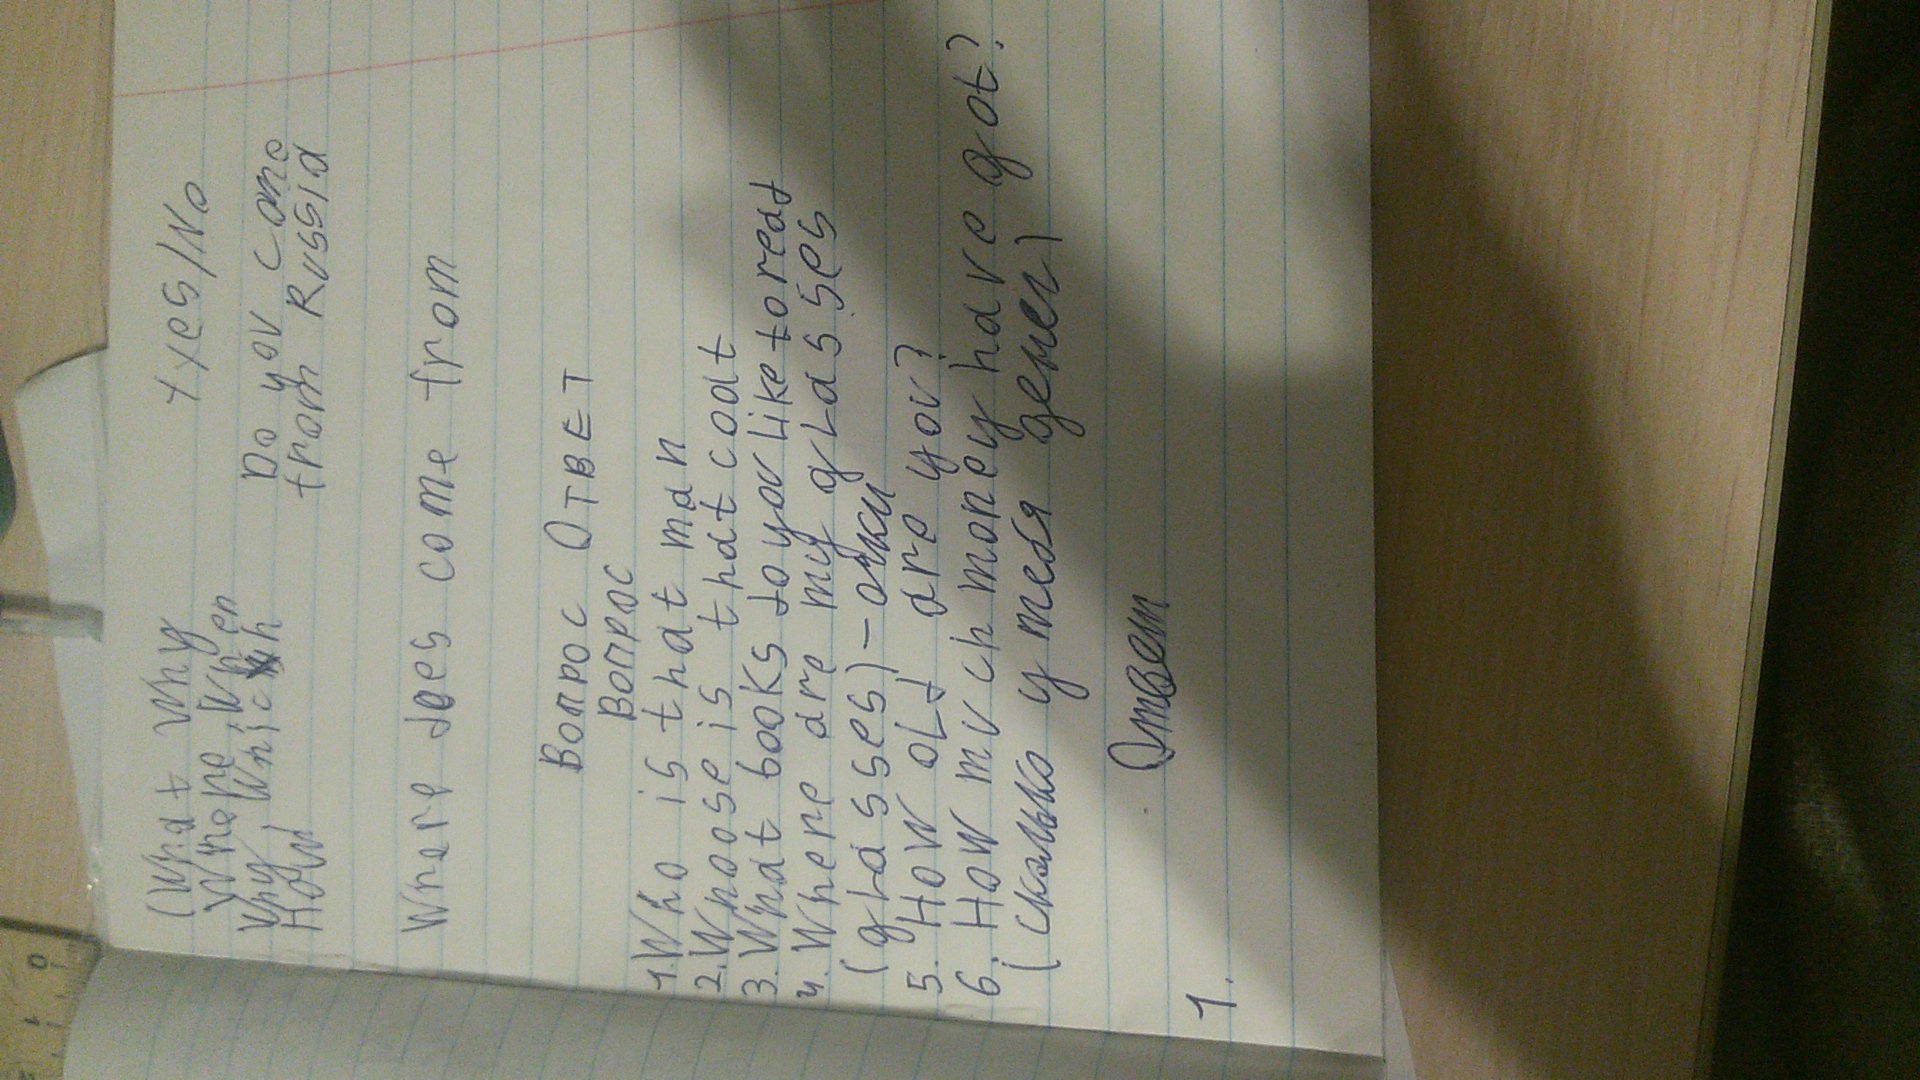 (What Why
Where, When
Why, Which
How
+ yes/No
Do you come
from Russia
Where does come from
Вопрос Ответ
Вопрос
1. Who is that man
2. Whoose is that coat
3. What books do you like to read
4. Where are my glasses
(glasses) - очки
5. How old are you?
6. How much money have got?
(сколько у тебя денег)
Ответ
1.